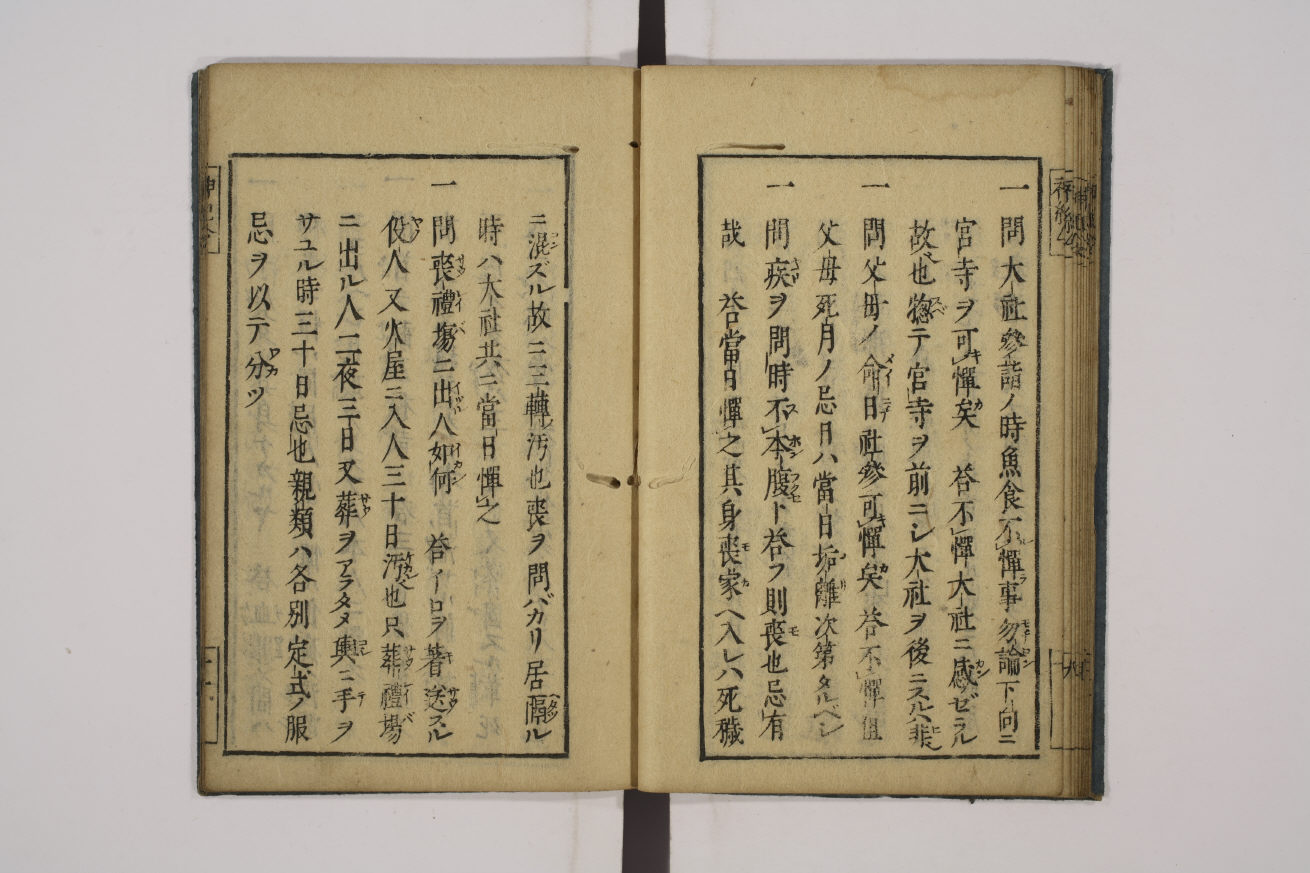 一問大社參詣ノ時魚食不憚事勿論下向ニ
宮寺ヲ可憚矣 答不憚大社ニ感ゼラル
故也惣テ宮寺ヲ前ニシ大社ヲ後ニスルハ非
一問父母ノ命日社參可憚矣 答不憚但
父母死月ノ忌日ハ當日垢離次第タルベシ
一問疾ヲ問時不本腹ト答フ則喪也忌有
哉 答當日憚之其身喪家ヘ入レハ死穢
ニ混ズル故ニ三轉汚也喪ヲ問バカリ居隔ル
時ハ大社共ニ當日憚之
一問喪禮場ニ出人如何 答イロヲ著送スル
役人又火屋ニ入人三十日汚也只葬禮場
ニ出ル人二夜三日又葬ヲアラタメ輿ニ手ヲ
サユル時三十日忌也親類ハ各別定式ノ服
忌ヲ以テ分ツ